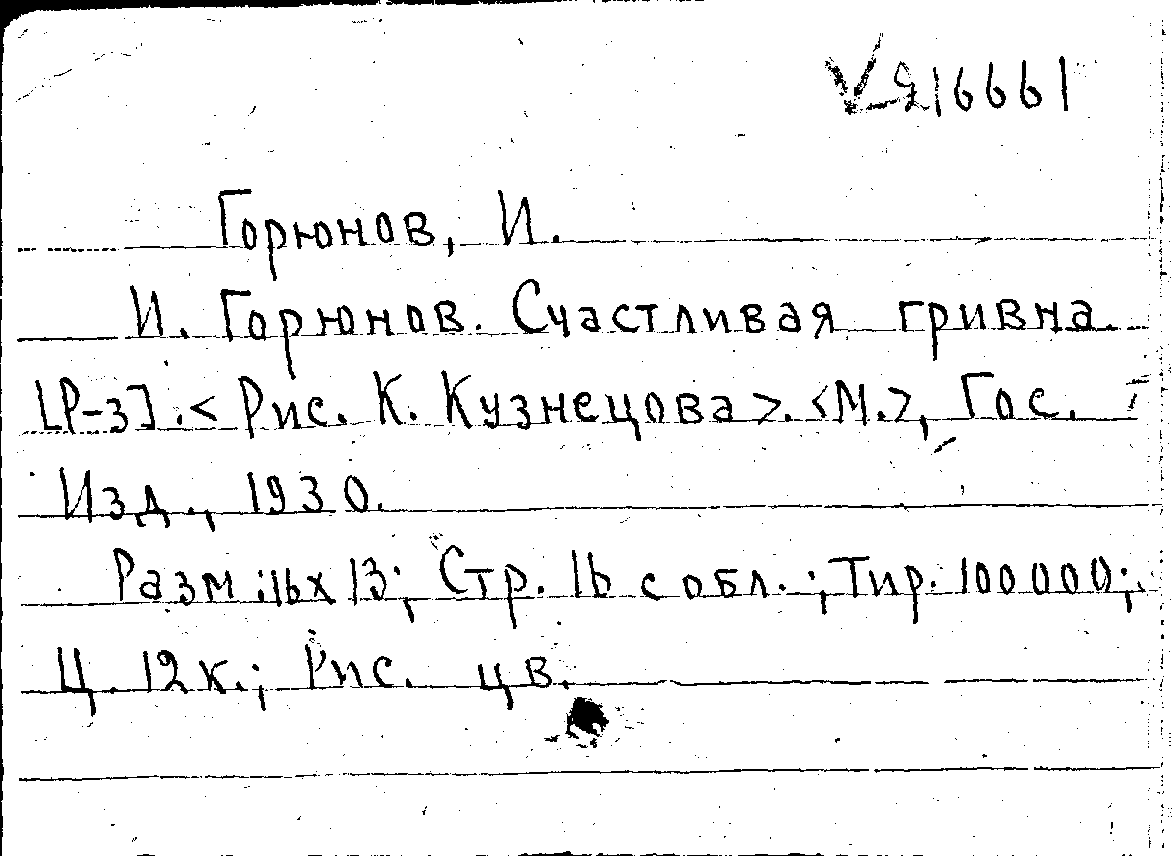 V 216661
Горюнов, И.
И. Горюнов. Счастливая гривна.
[Р-з]. <Рис. К. Кузнецова>. <М.>, Гос.
Изд., 1930.
Разм: 16х13; Стр. 16 с обл.; Тир. 100000;
Ц. 12 к.; Рис. цв.